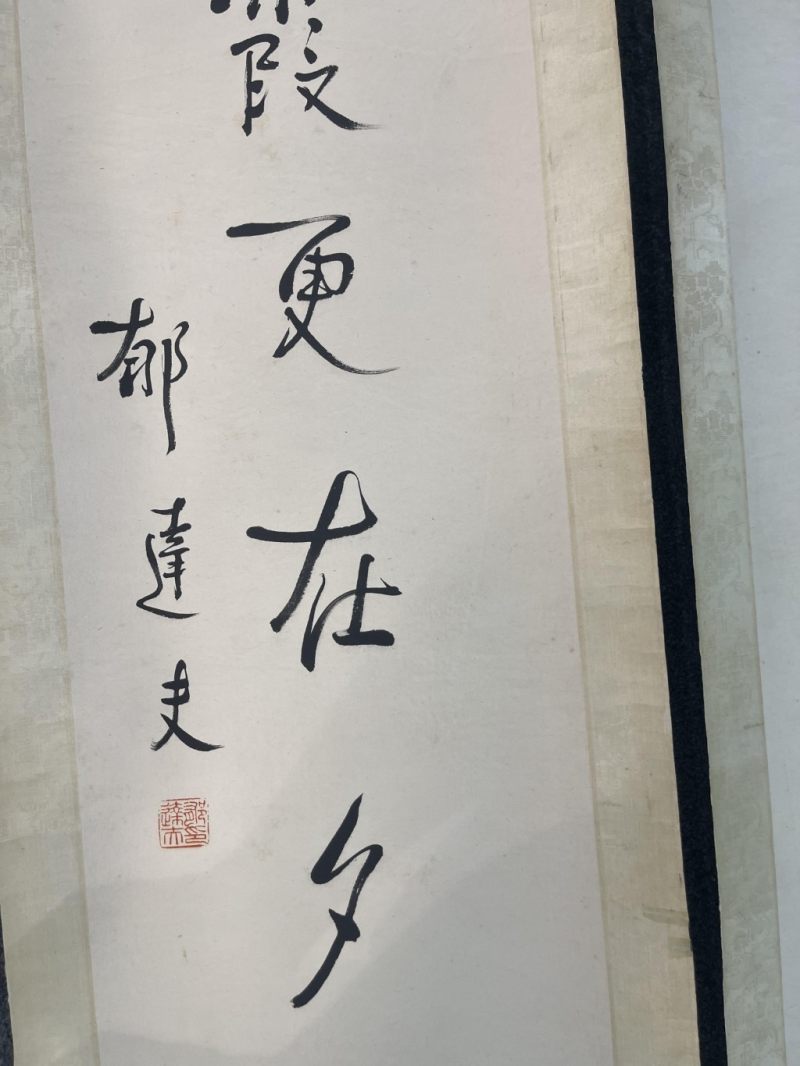 霞更在夕
郁達夫
郁達夫印